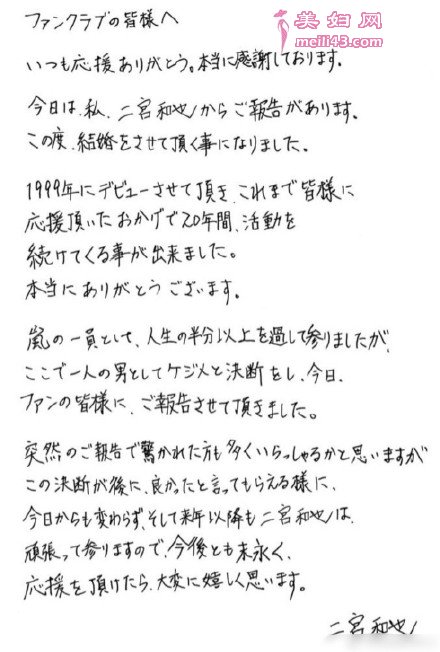 美妇网
meili43.com
ファンクラブの皆様へ
いつも応援ありがとう。本当に感謝しております。
今日は、私、二宮和也からご報告があります。
この度、結婚をさせて頂く事になりました。
1999年にデビューさせて頂き、これまで皆様に
応援頂いたおかげで20年間、活動を
続けてくる事が出来ました。
本当にありがとうございます。
嵐の一員として、人生の半分以上を過して参りましたが、
ここで一人の男としてケジメと決断をし、今日、
ファンの皆様に、ご報告させて頂きました。
突然のご報告で驚かれた方も多くいらっしゃるかと思いますが
この決断が後に、良かったと言ってもらえる様に、
今日からも変わらず、そして来年以降も二宮和也は、
頑張って参りますので、今後とも末永く、
応援を頂けたら、大変に嬉しく思います。
二宮和也